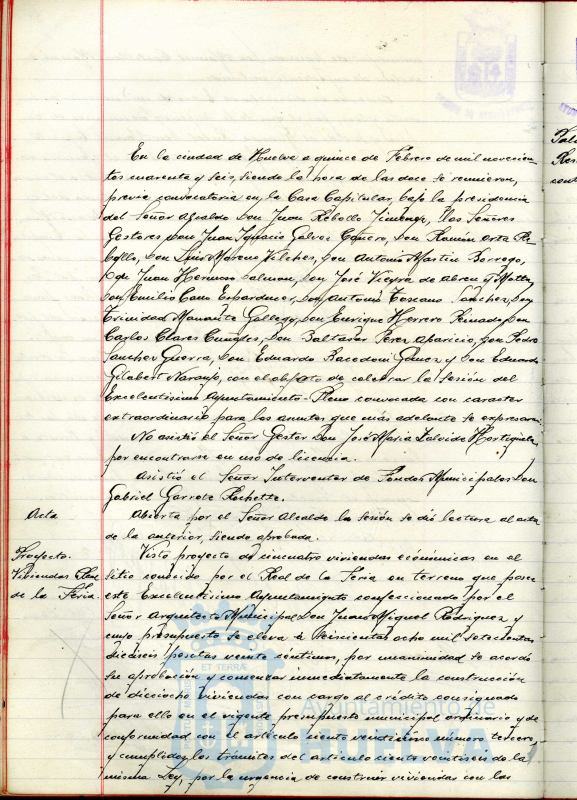 En la ciudad de Huelva a quince de Febrero de mil novecien-
tos cuarenta y seis, siendo la hora de las doce se reunieron,
previa convocatoria en la Casa Capitular, bajo la presidencia
del Señor Alcalde Don Juan Rebollo Jimenez, los Señores
Gestores Don Juan Ignacio Galvez Cañero, Don Ramón Arta Re-
bollo, Don Luis Moreno Vilches, Don Antonio Martin Borrego,
Don Juan Hermoso Don José Vieyra de Abreu y Motta,
Don Emilio Cano Don Antonio Toscano Sanchez, Don
Trinidad Gallego, Don Enrique Herrero Don
Carlos Clares Don Baltasar Perez Aparicio, Don Pedro
Sanchez Guerra, Don Eduardo Gómez y Don Eduardo
Gilabert Naranjo, con el objeto de celebrar la sesión del
Excelentísimo Ayuntamiento-Pleno convocada con caracter
extraordinario para los asuntos que más adelante se expresaran.
No asistió el Señor Gestor Don José Maria
por encontrarse en uso de licencia.
Asistió el Señor Interventor de Fondos Municipales Don
Gabriel Garrote
Acta
Abierta por el Señor Alcalde la sesión se dió lectura al acta
de la anterior, siendo aprobada.
Proyecto.
Viviendas
de la Feria.
Visto proyecto de cincuatro viviendas económicas en el
sitio conocido por el Real de la Feria en terreno que posee
este Excelentísimo Ayuntamiento confeccionado por el
Señor Arquitecto Municipal Don Juan Miguel Rodriguez y
cuyo presupuesto se eleva a seiscientas ocho mil setecientas
dieciseis pesetas veinte centimos, por unanimidad se acordó
su aprobación y comenzar inmediatamente la construcción
de dieciocho viviendas con cargo al crédito consignado
para ello en el vigente presupuesto municipal ordinario y de
conformidad con el articulo ciento número tercero,
y cumplidos los trámites del articulo ciento veintiseis de la
misma Ley, por la urgencia de construir viviendas con las
Ayuntamiento de
HUELVA